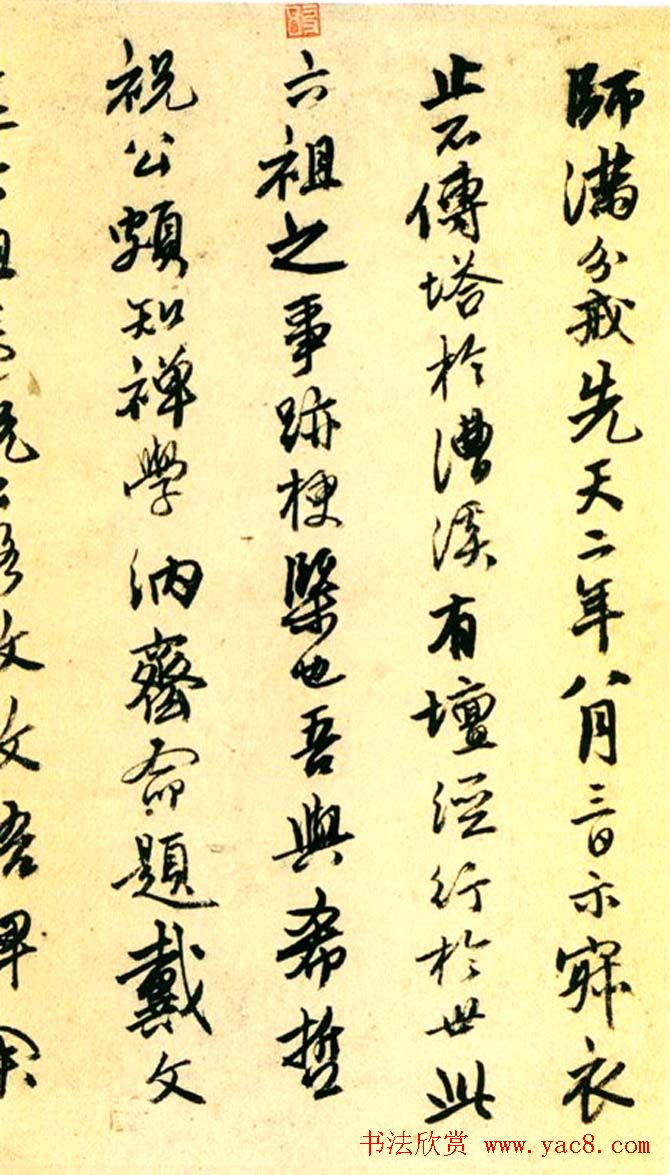 師滿分戒先天二年八月三日示寂衣
止不傳塔於漕溪有壇經行於世此
六祖之事跡梗槩也吾與希哲
祝公頗知禪學納齋命題戴文
書法欣賞 www.yac8.com